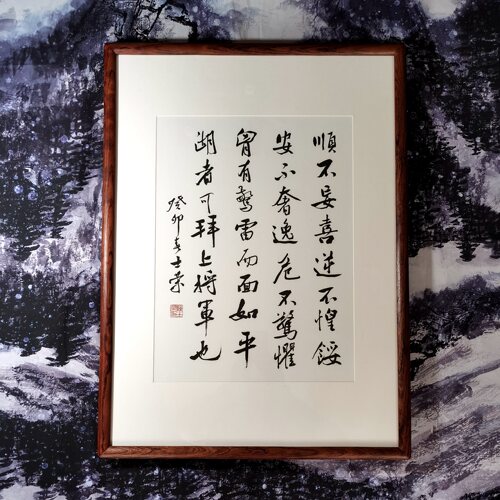 順不妄喜逆不惶餒
安不奢逸危不驚懼
胷有驚雷而面如平
湖者可拜上將軍也
癸卯春士榮